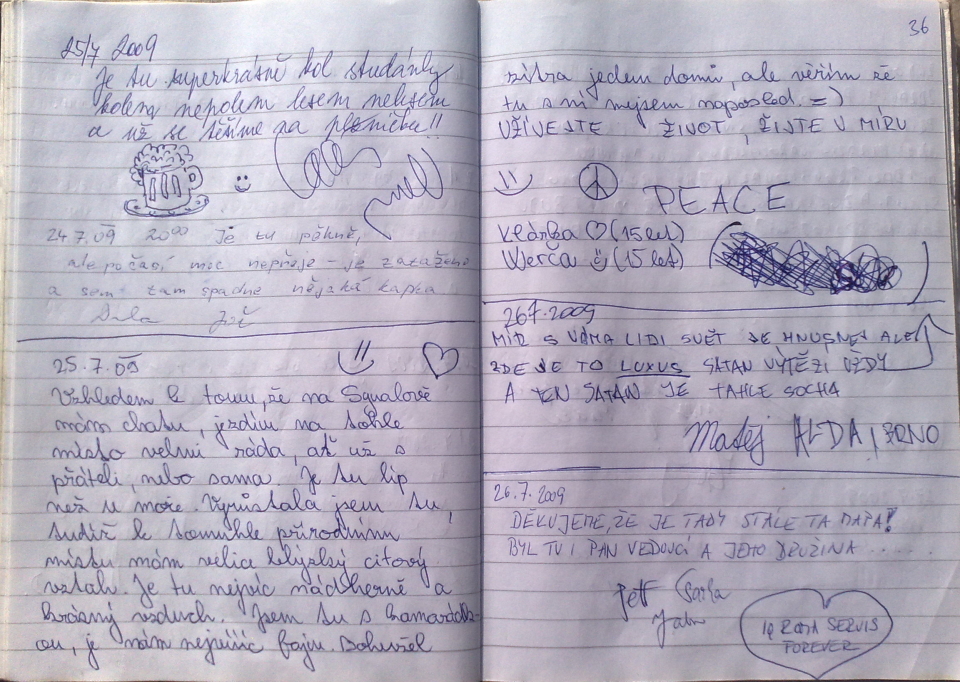 25/7 2009
Je tu superkrásně kol studánky
kolem nepolem lesem nelesem
a už se těšíme na písničku!!
24.7.09 20⁰⁰ Je tu pěkně,
ale počasí moc nepřeje - je zataženo
a sem tam spadne nějaká kapka
25.7.09
Vzhledem k tomu, že na Sqvalově
mám chatu, jezdím na tohle
místo velmi ráda, ať už s
přáteli, nebo sama. Je tu líp
než u moře. Vyrůstala jsem tu,
tudíž k tomuhle přírodnímu
místu mám velice blýzský citový
vztah. Je tu nejvíc nádherně a
krásný vzduch. Jsem tu s kamarádk-
ou, je nám nejvíííc fajn. Bohužel
36
zítra jedem domů, ale věřím že
tu s ní nejsem naposled. =)
UŽÍVEJTE ŽIVOT, ŽIJTE V MÍRU
PEACE
Klárka ♡ (15 let)
Werča (15 let)
26.7.2009
MÍR S VÁMA LIDI SVĚT JE HNUSNEJ ALE
ZDE JE TO LUXUS SATAN VÝTĚZÍ VŽDY
A TEN SATAN JE TAHLE SOCHA
Matěj ALDA, BRNO
26.7.2009
DĚKUJEME, ŽE JE TADY STÁLE TA MAPA!
BYL TU I PAN VEDOUCÍ A JEHO DRUŽINA......
IQ ROMA SERVIS
FOREVER